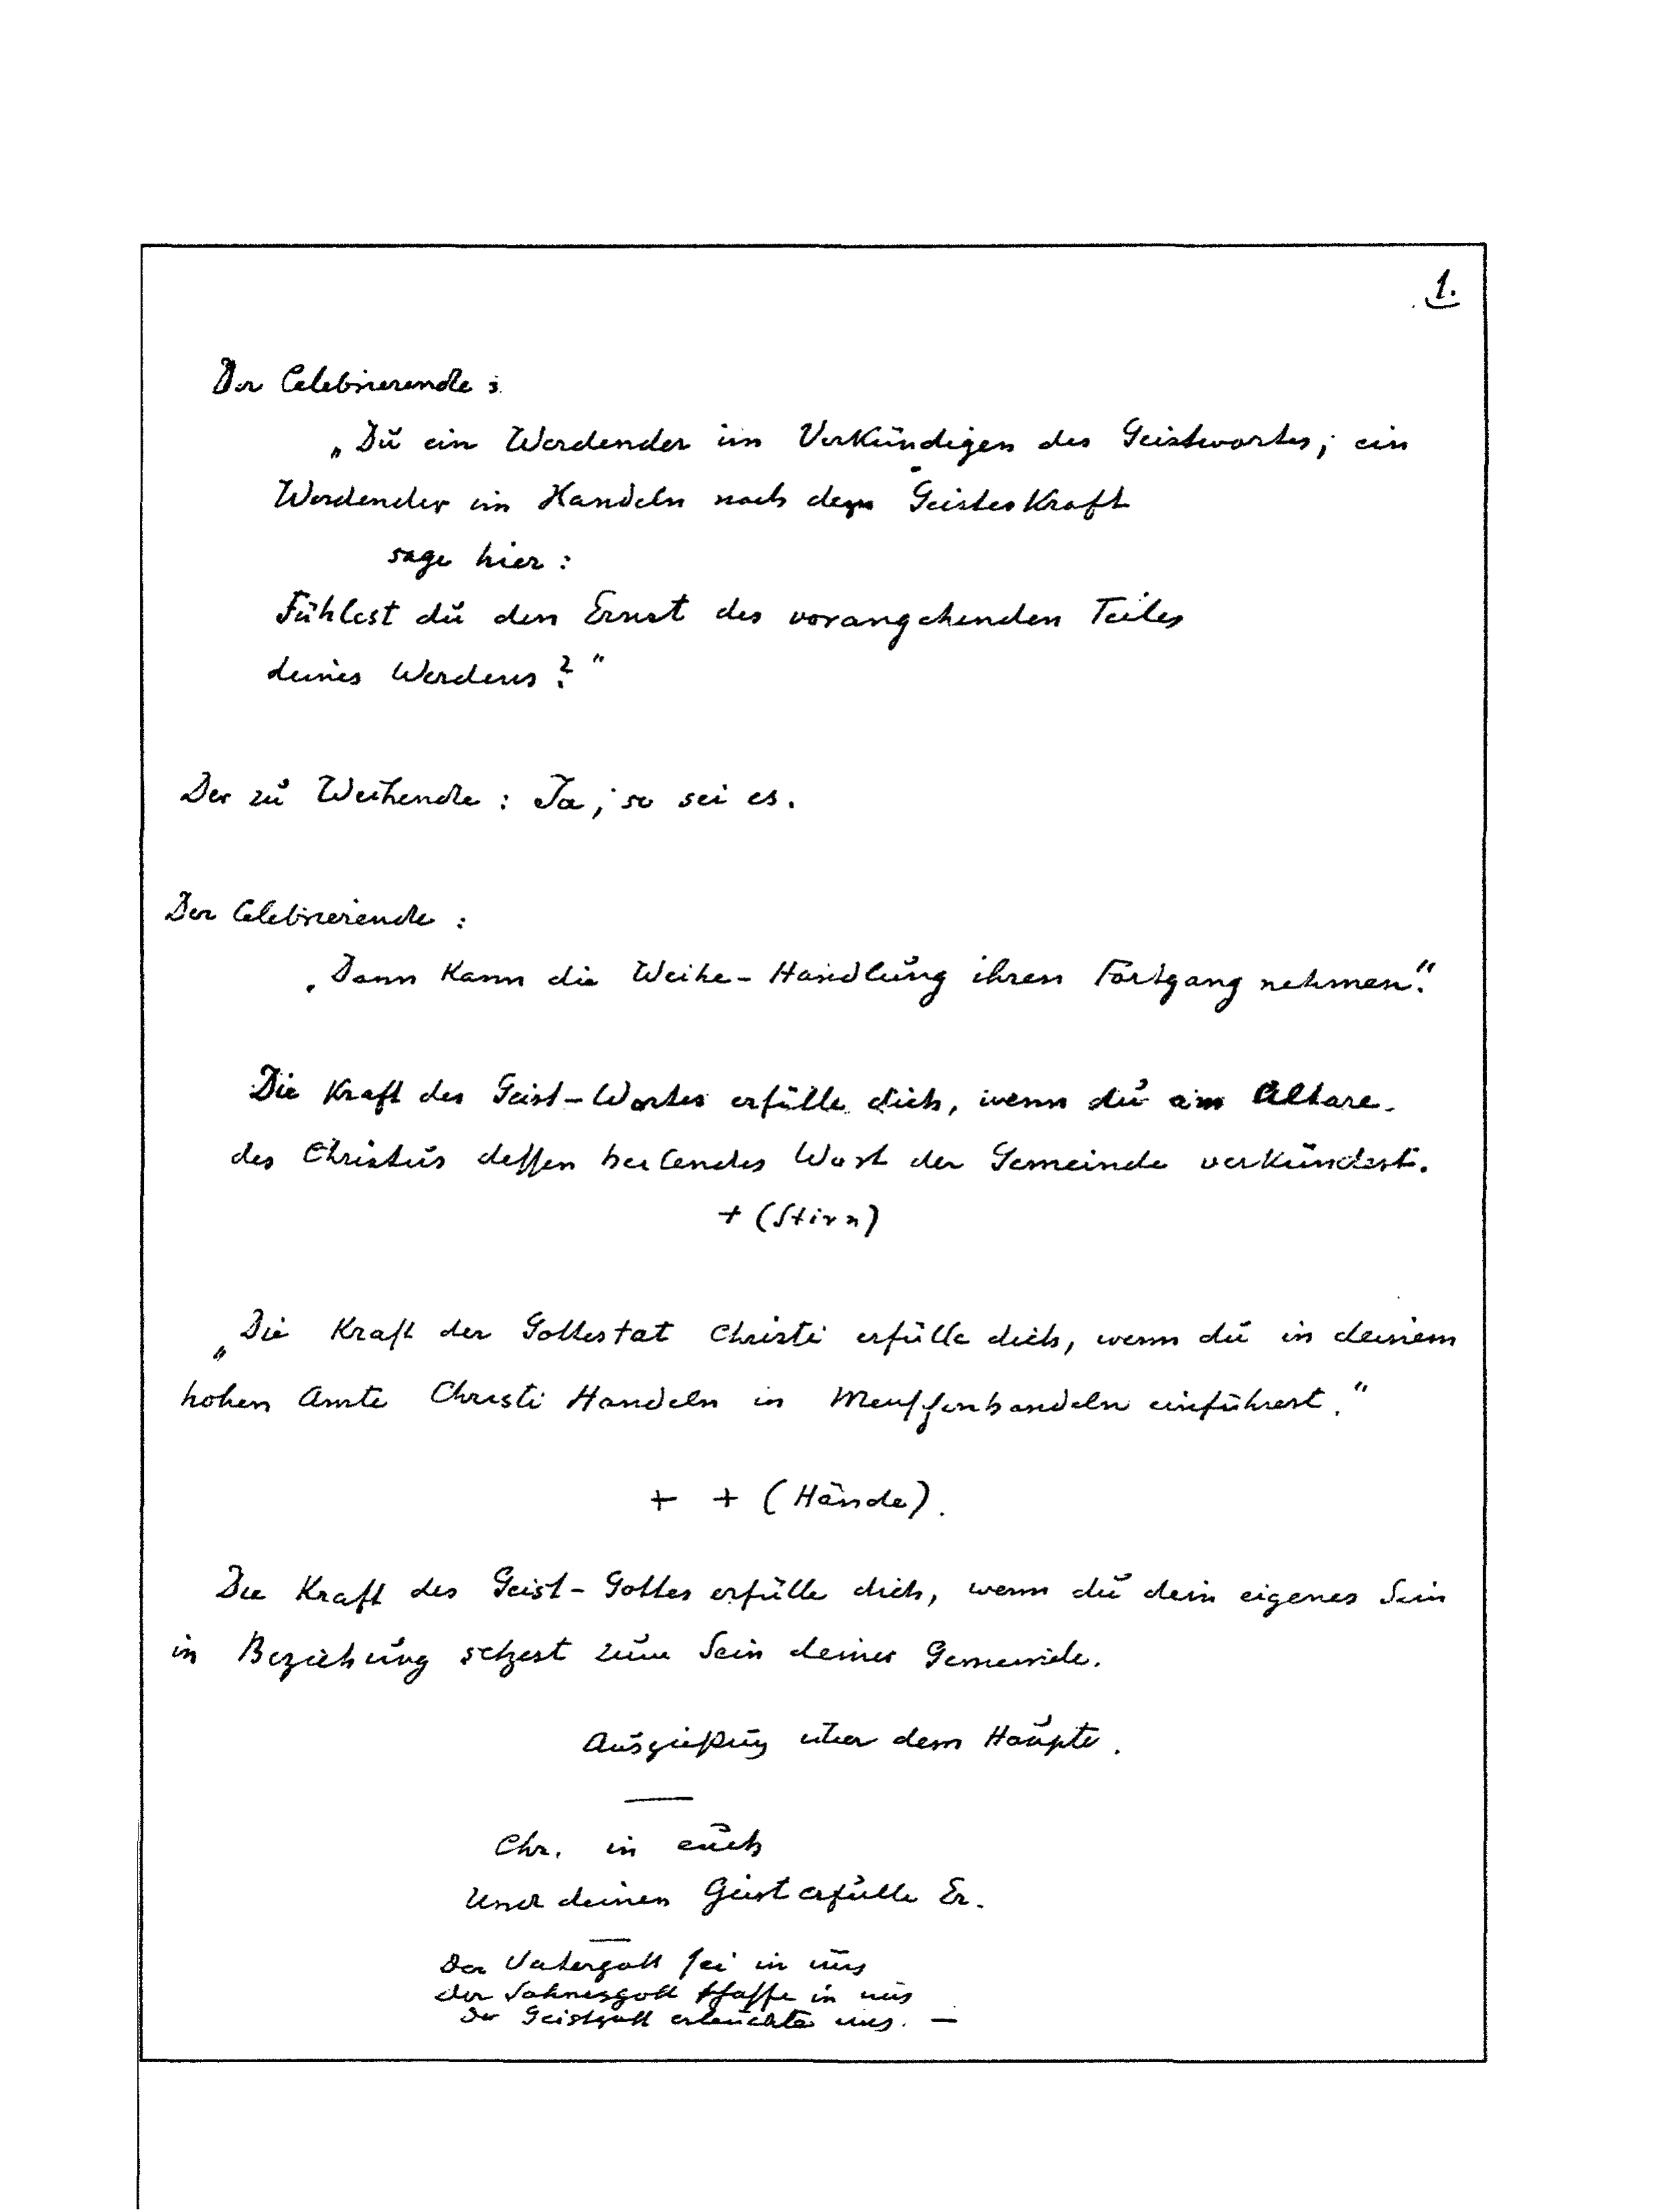 1.
Der Celebrierende:
„Du ein Werdender im Verkündigen des Geistwortes; ein
Werdender im Handeln nach der Geisteskraft
sage hier:
Fühlest du den Ernst des vorangehenden Teiles
deines Werdens?"
Der zu Weihende: Ja, so sei es.
Der Celebrierende:
„Dann kann die Weihe-Handlung ihren Fortgang nehmen."
Die Kraft des Geist-Wortes erfülle dich, wenn du am Altare
des Christus dessen heilendes Wort der Gemeinde verkündest.
+ (Stirn)
„Die Kraft der Gottestat Christi erfülle dich, wenn du in deinem
hohen Amte Christi Handeln in Menschenhandeln einführest."
+ + (Hände).
Die Kraft des Geist-Gottes erfülle dich, wenn du dein eigenes Sein
in Beziehung setzest zum Sein deiner Gemeinde.
Ausgießung über dem Haupte.
Chr. in euch
Und deinen Geist erfülle Er.
Der Vatergott sei in uns
der Sohnesgott schaffe in uns
Der Geistgott erleuchte uns. —